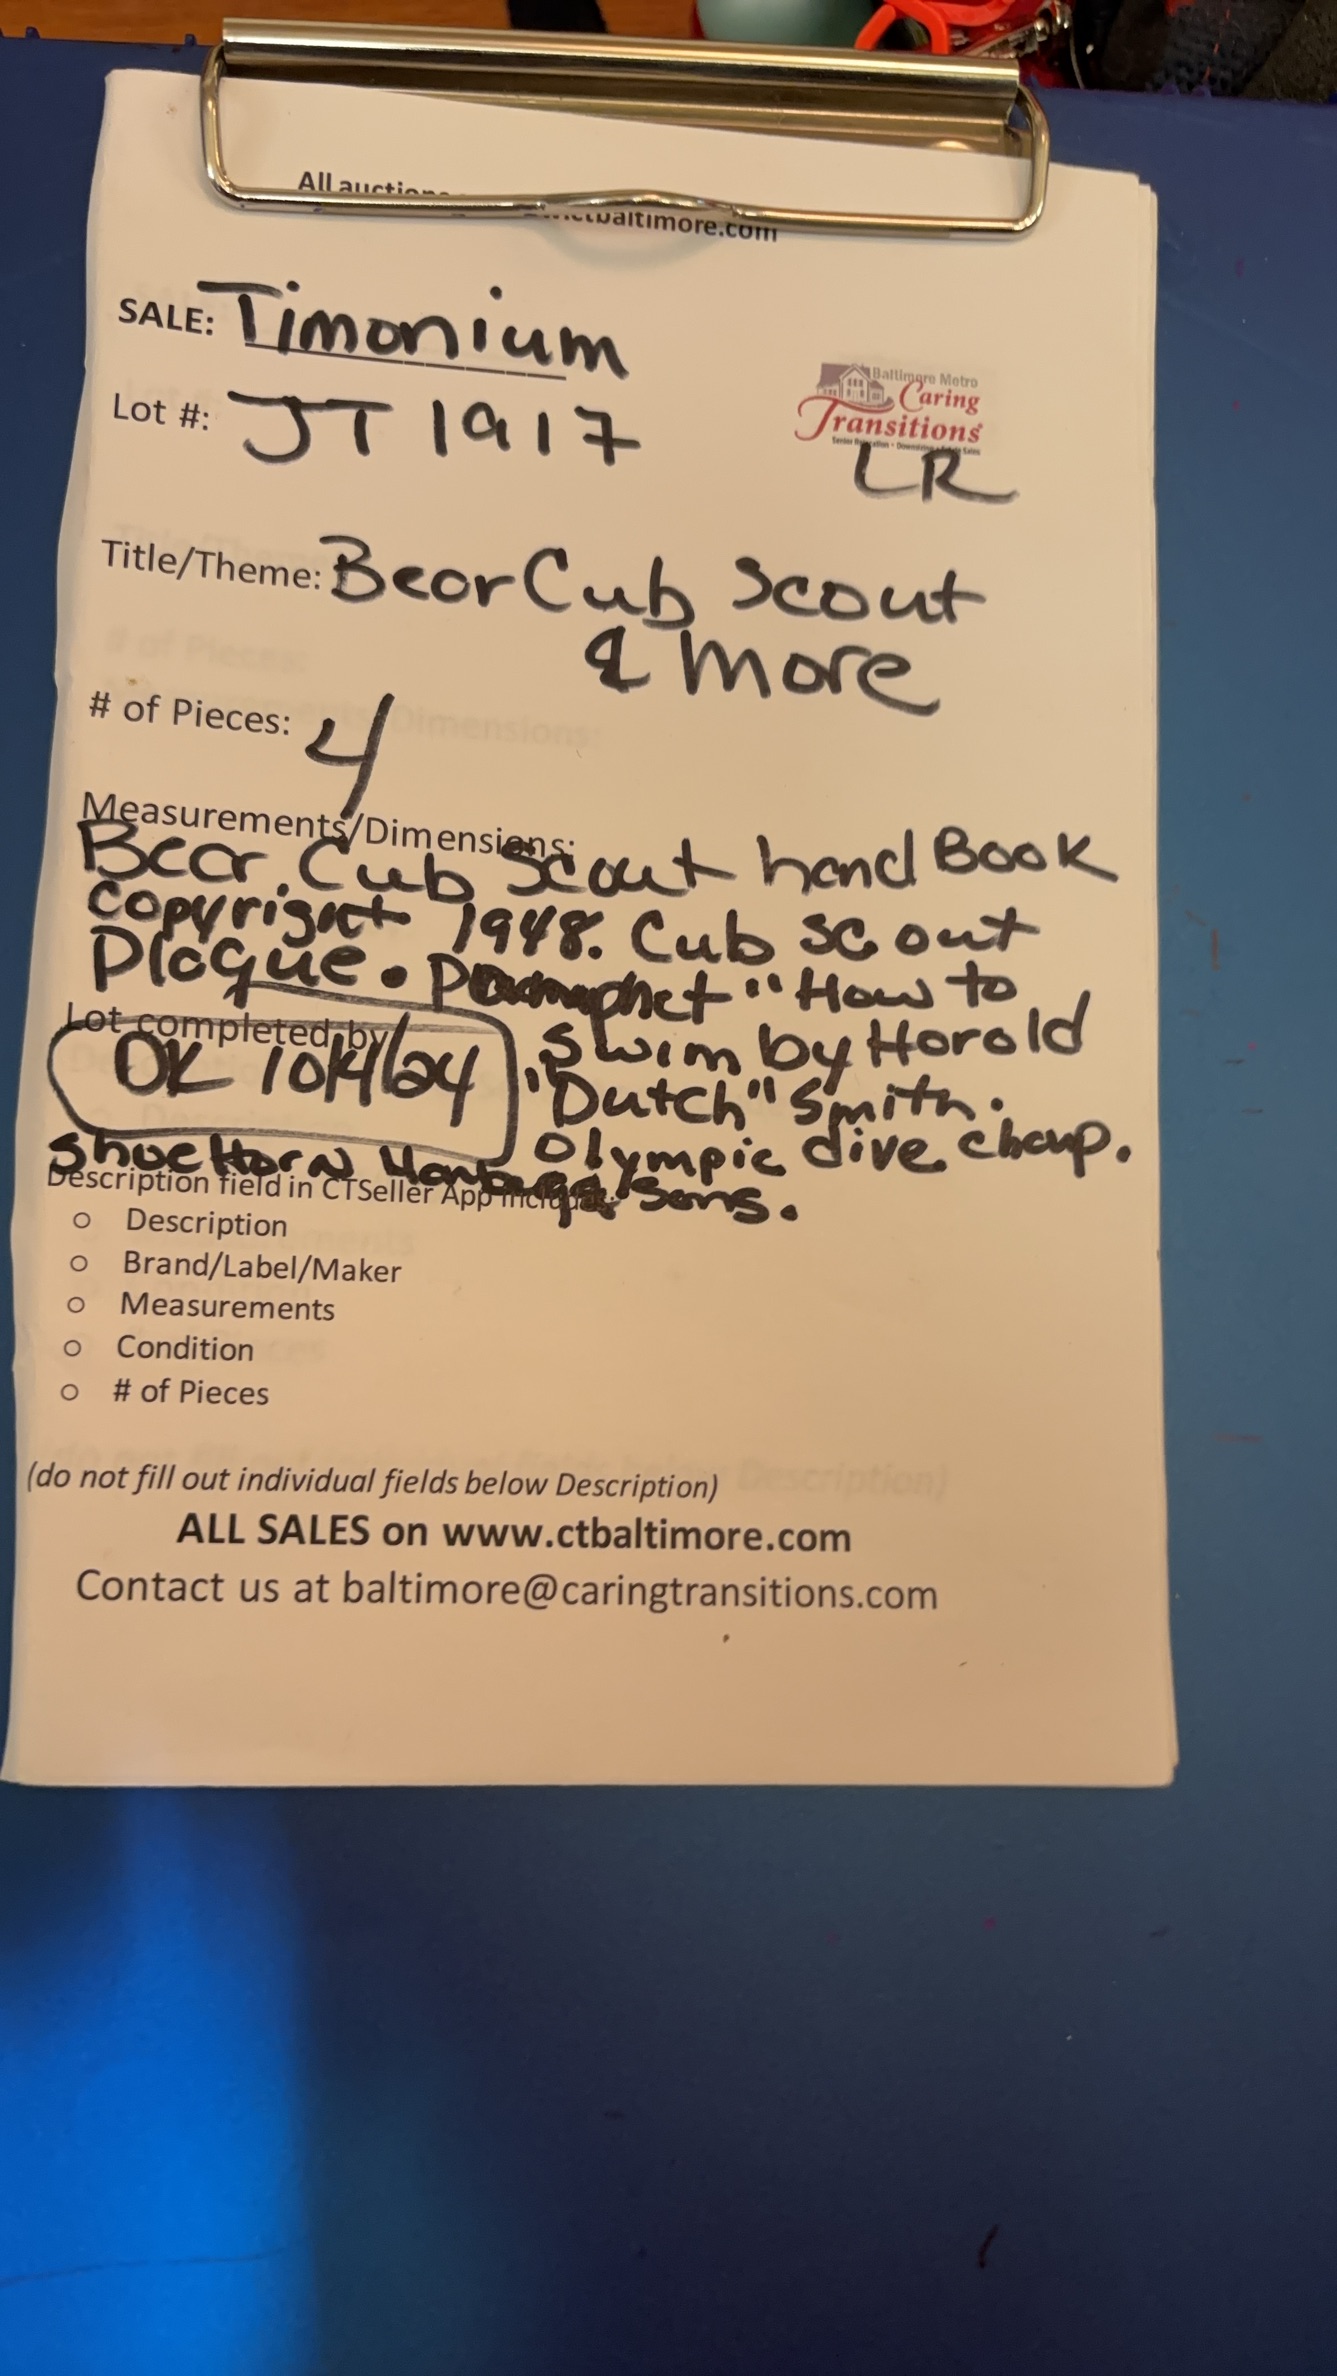 All auction
ctbaltimore.com
SALE: Timonium
Lot #: JT 1917
Baltimore Metro
Caring
Transitions
LR
Title/Theme: Bear Cub Scout
& more
# of Pieces: 4
Measurements/Dimensions:
Bear Cub Scout hand Book
copyright 1948. Cub scout
Plaque. "How to
Lot completed by
swim by Harold
OK 10/4/24
"Dutch" Smith.
Olympic dive champ.
Shoe Horn Sons.
Description field in CTSeller App includes:
○ Description
○ Brand/Label/Maker
○ Measurements
○ Condition
○ # of Pieces
(do not fill out individual fields below Description)
ALL SALES on www.ctbaltimore.com
Contact us at baltimore@caringtransitions.com